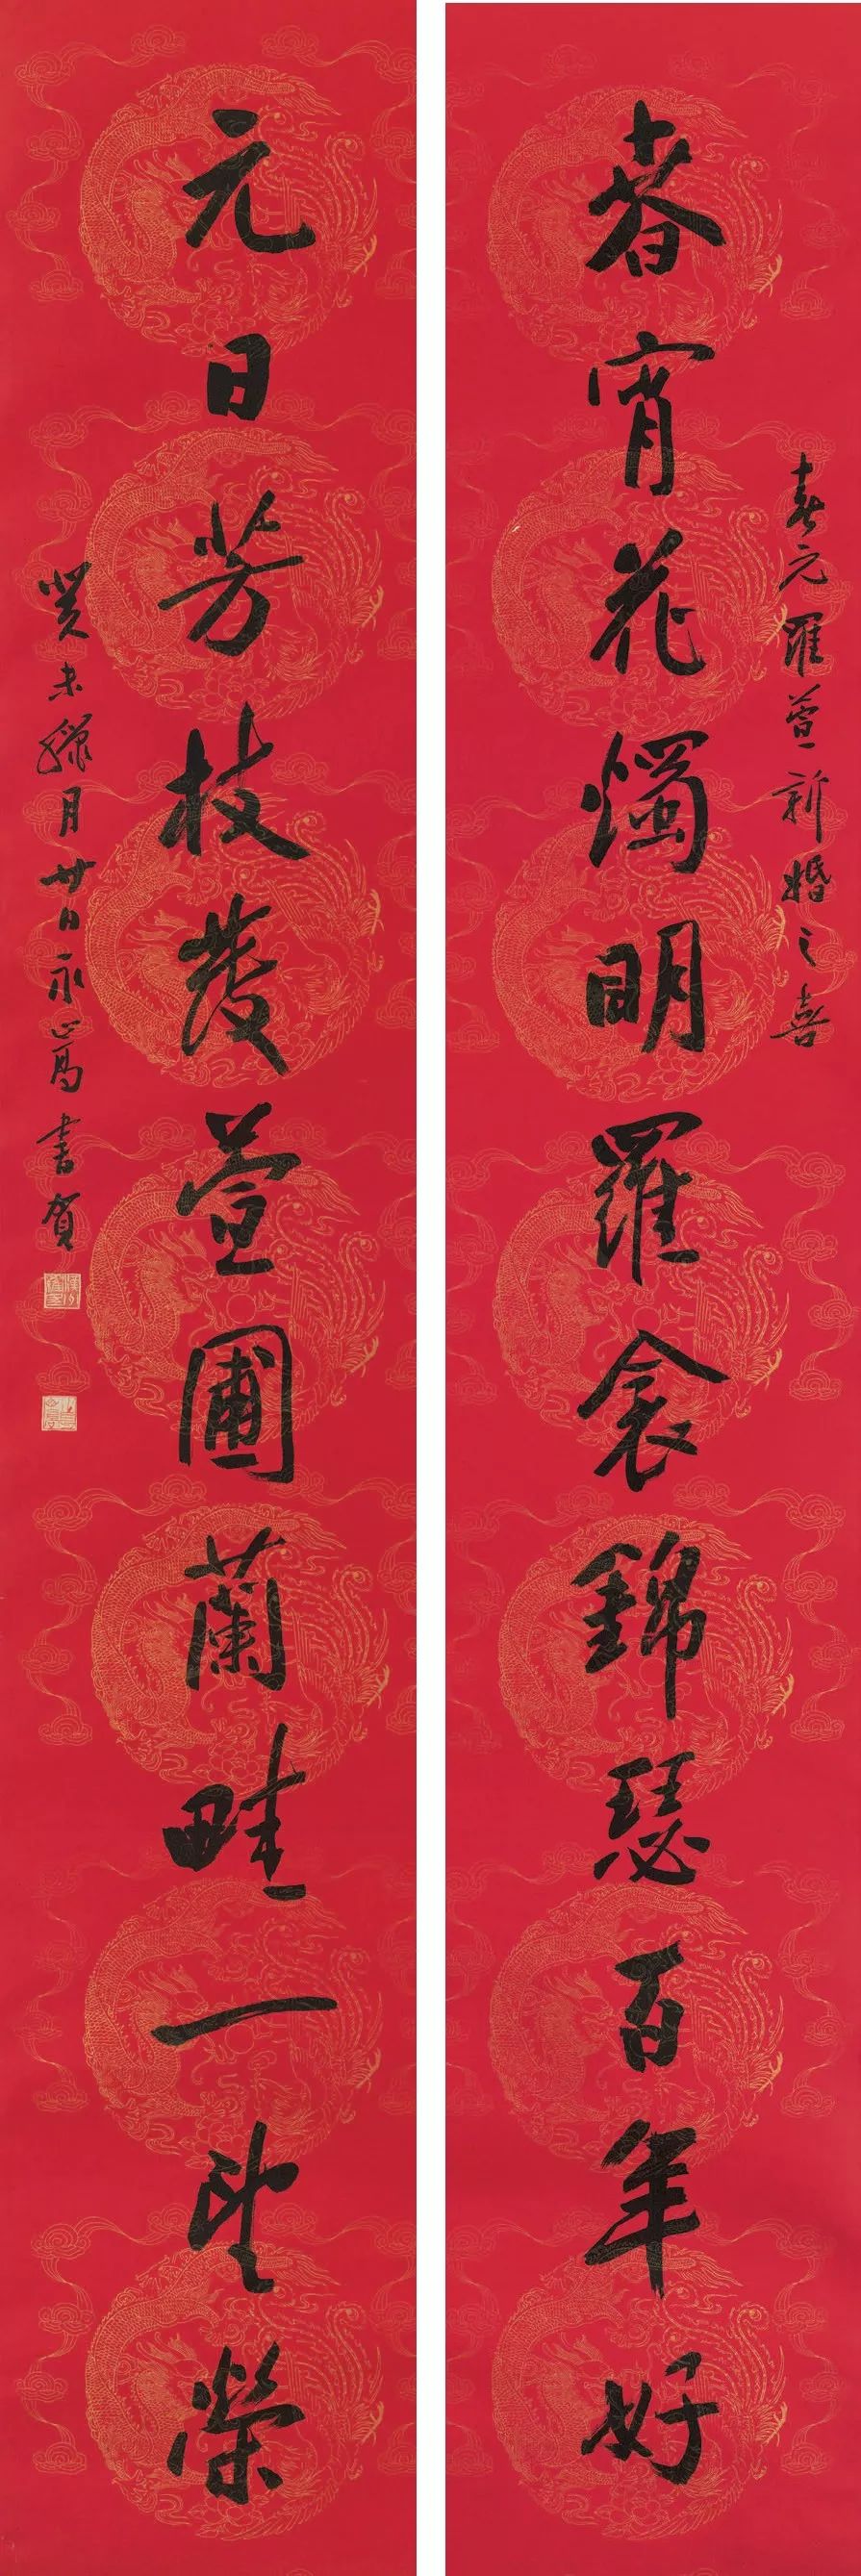 春元羅萱新婚之喜
春宵花燭明羅衾錦瑟百年好
元日芳枝發萱圃蘭畦一望榮
癸未臘月廿日永嵩書賀